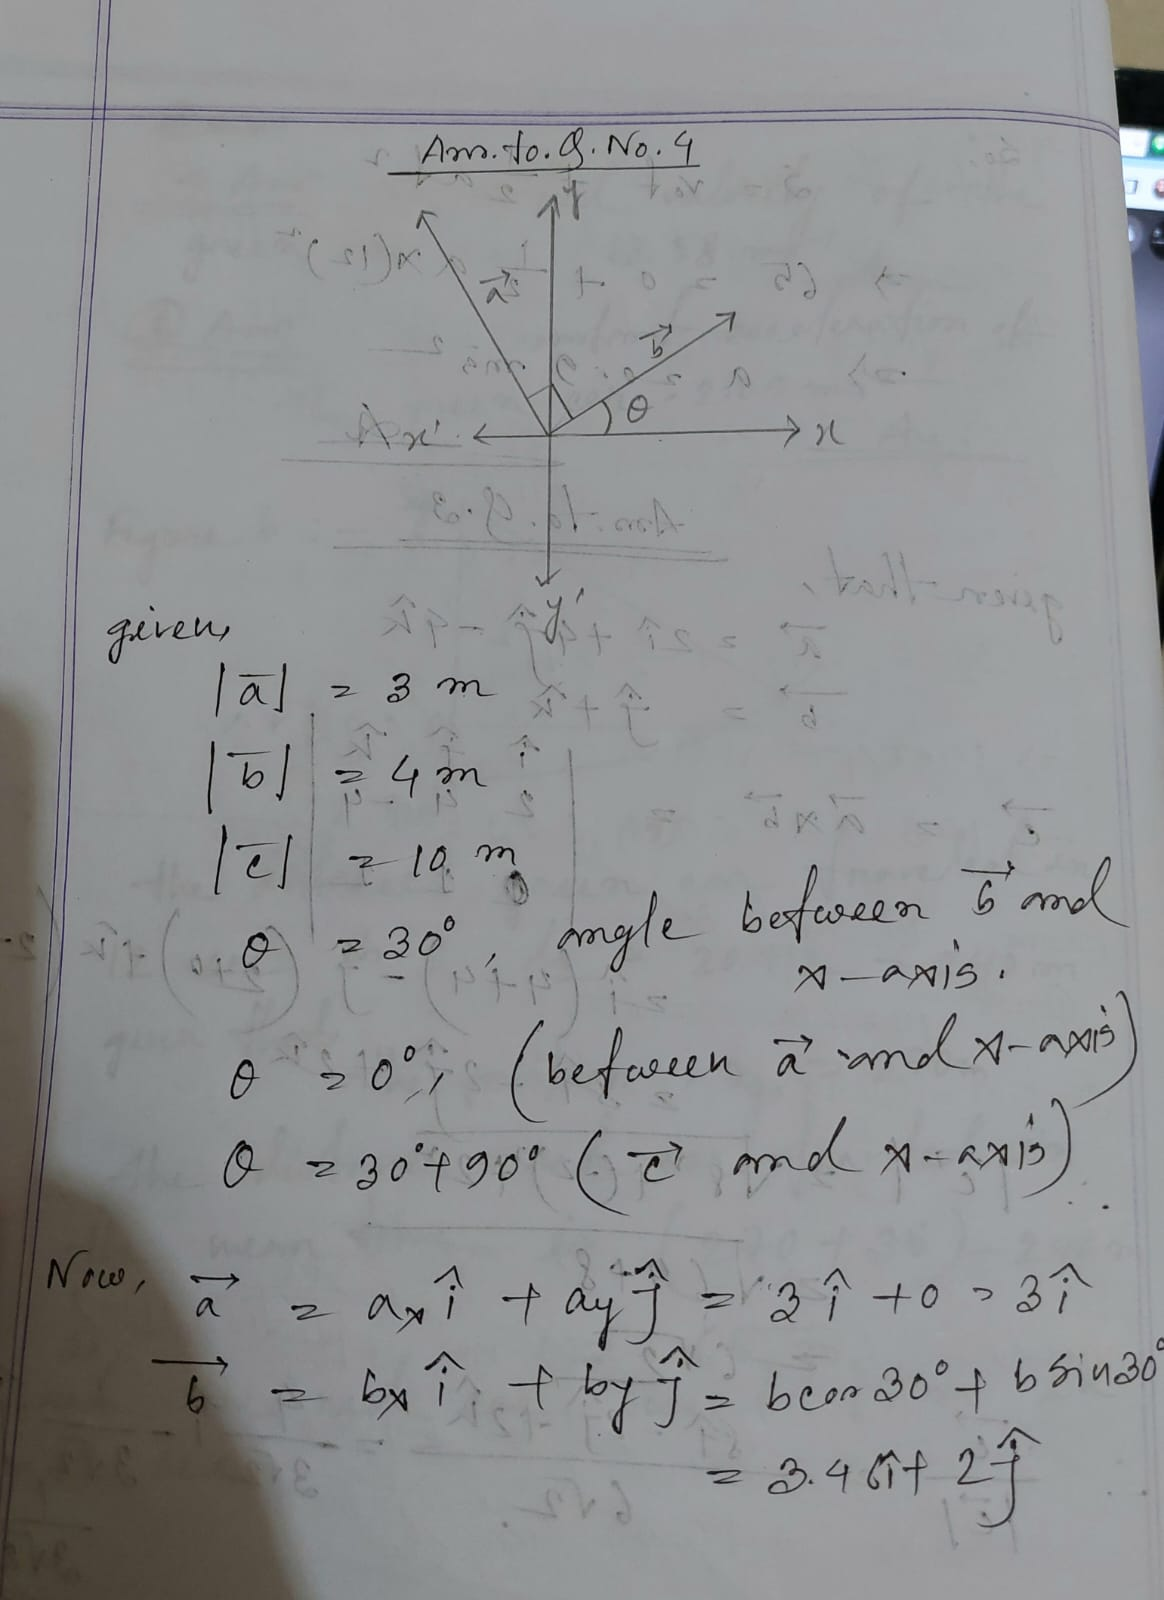 Ans. to. Q. No. 4
y
a⃗
b⃗
θ
x' x
y'
given,
|a⃗| = 3 m
|b⃗| = 4 m
|c⃗| = 10 m
θ = 30°, angle between b⃗ and
x-axis.
θ = 0°, (between a⃗ and x-axis)
θ = 30°+90° (c⃗ and x-axis)
Now, a⃗ = aₓ î + ay ĵ = 3 î + 0 = 3 î
b⃗ = bₓ î + by ĵ = b cos 30° + b sin 30°
= 3.46 î + 2 ĵ